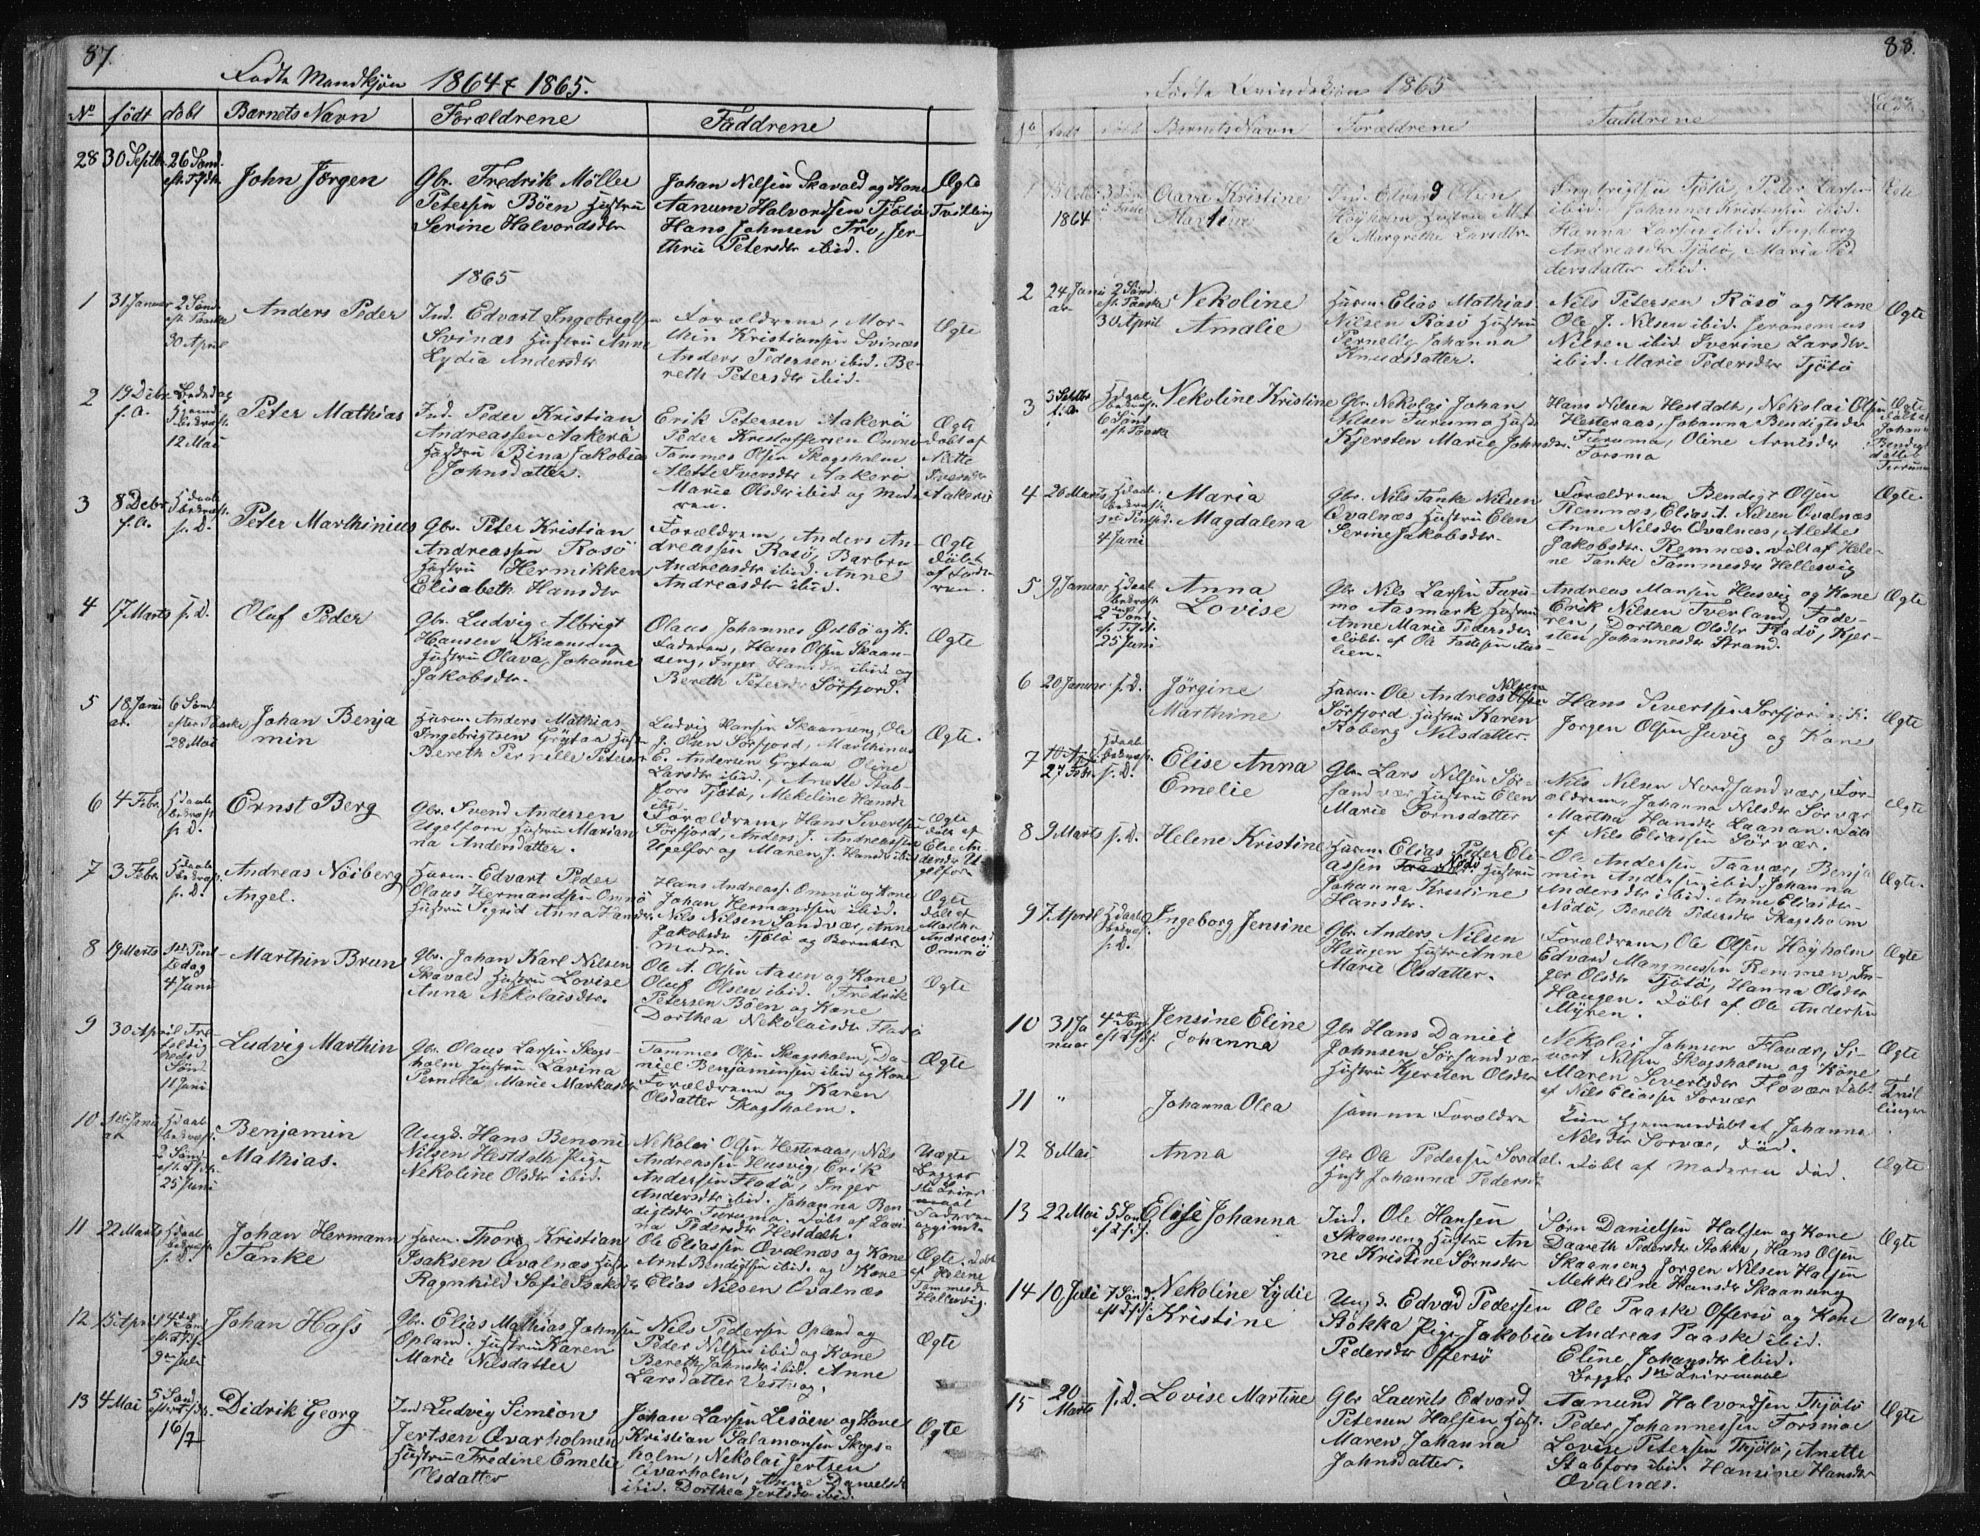 87.
Fødte Mandkjøn 1864 & 1865.
No født døbt Barnets Navn Forældrene Faddrene
28 30 Septb. 26 Sønd. eft. Trfdh. John Jørgen
Gbr. Fredrik Möller
Petersen Böen Hustru
Serine Halvordsdtr
Johan Nilsen Skavold og Kone
Aanum Halvordsen Tjötö
Hans Johnsen Tro, Jer-
thru Petersdtr ibid.
Ægte
Tvilling
1865
1 31 Januar 2 Sønd. eft. Paaske 30 April
Anders Peder
Ind. Edvart Ingebrigtsen
Svinæs Hustru Anna
Lydia Andersdtr
Forældrene, Mar-
thin Kristiansen Svinæs
Anders Pedersen ibid. Be-
reth Petersdtr ibid.
Ægte
2 19 Debr f.A. Bededag Hjemd. bekræft. 12 Mai
Peter Mathias
Ind. Peder Kristian
Andreassen Aakerö
Hustru Bina Jakobia
Johnsdatter.
Erik Petersen Aakerö
Peder Kristoffersen Omnö
Tammes Olsen Skogsholm
Alette Iversdtr Aakerö
Marie Olsdtr ibid og Mode-
ren.
Ægte
Døbt af
Alette
Iversdtr
Aakerö
3 8 Debr f.A. Hdaab bekræft. s.D.
Peter Marthinius
Gbr. Peter Kristian
Andreassen Rosö
Hustru Hermikken
Elisabeth Hansdtr
Forældrene, Anders An-
dreassen Rosö, Barbra
Andreasdtr ibid. Anne
Andreasdtr ibid.
Ægte
Døbt
af Fade-
ren.
4 17 Marts s.D.
Oluf Peder
Gbr. Ludvig Albrigt
Hansen Skaanseng
Hustru Olava Johanna
Jakobsdtr.
Olaus Johannes Ødbö og K.
Faderen, Hans Olsen Skaan-
seng, Inger Hansdtr ibid og
Bereth Petersdtr Sörfjord.
Ægte
5 18 Janu ar. 6 Sønd. efter Paaske 28 Mai
Johan Benja
min
Husm. Anders Mathias
Ingebrigtsen Grytaa Hustr
Bereth Pernille Petersdtr
Ludvig Hansen Skaanseng, Ole
J. Olsen Sörfjord, Marthinus
E. Andersen Grytaa Oline
Larsdtr ibid., Anette Stab-
fors Tjötö, Mekeline Hansdtr
ibid.
Ægte.
6 4 Febr. Hdaab bekræft s.D.
Ernst Berg
Gbr. Svend Andersen
Ugelforn Hustru Marian
na Andersdatter.
Forældrene, Hans Sivertsen
Sörfjord, Anders J. Andreassen
Ugelfor og Maren J. Hansdtr ibid
Ægte
Døbt af
Elie An
dersdtr U
gelfor
7 3 Febr. Hdaab bekræft. s.D.
Andreas Noiberg
Angel.
Husm. Edvart Peder
Olaus Hermandsen Omnö
Hustru Sigrid Anna Hansdtr
Hans Andreass. Omnö og Kone
Johan Hermandsen ibid.
Nils Nilsen Sandvær, Anne
Jakobsdtr Tjötö og Barnets
Moder.
Ægte
Døbt af
Martha
Andreasd
Ommö
8 19 Marts 1ste Pint sedag 4 Juni
Marthin Brun
Gbr. Johan Karl Nilsen
Skavold Hustru Lovise
Anna Nekolaisdtr.
Ole A. Olsen Aasen og Kone
Oluf Olsen ibid. Fredrik
Petersen Böen og Kone
Dorthea Nekolaisdtr Fladö
Ægte
9 30 April Tre- foldig- heds Sønd. 11 Juni
Ludvig Marthin
Gbr. Olaus Larsen Skogs-
holm Hustru Lavina
Pernelle Marie Markusdtr
Tammes Olsen Skogsholm, Da-
niel Benjaminsen ibid og Kone
Forældrene og Karen
Olsdatter Skogsholm.
Ægte
10 Janu ar Hdaab bekræft. 2 Sønd eft. Trfh. 25 Juni
Benjamin
Mathias.
Ungk. Hans Benoni
Nilsen Hestdalh Pige
Nekoline Olsdtr ibid.
Nekolai Olsen Hesteraas, Nils
Andreassen Husvig, Erik
Andersen Fladö, Inger
Andersdtr ibid. Johanna Ben-
digtsdtr Furuma. Døbt af Lavi-
na Pedersdtr Hestdalh.
Uægte
Begges
1ste Leier
maal
Faderen
opgivet
11 22 Marts Hdaab bekræft. s.D.
Johan Hermann
Tanke
Husm. Thore Kristian
Isaksen Qvalnæs Hustr
Ragnhild Sofie Isaksdtr
Ole Eliassen Qvalnæs og Kone
Arnt Bendigtsen ibid. og Kone
Elias Nilsen Qvalnæs
Ægte. Døbt
af Helene
Tammesdtr
Hellesvig.
12 15 April 4de Sønd eft. Trfh. 9de Juli
Johan Hass
Gbr. Elias Mathias Johnsen
Opland, Hustru Karen
Marie Nilsdatter
Nils Pedersen Opland og
Peder Nilsen ibid og Kone
Bereth Johnsdtr ibid. Anne
Larsdatter Vestvog.
Ægte
13 4 Mai 5 Sønd. efter Trfdh. 16/7
Didrik Georg
Ind Ludvig Simeon
Jertsen Qvarholmen
Hustru Fredine Emelie
Olsdatter
Johan Larsen Lisöen og Kone
Kristian Salamonsen Skogs-
holm, Nekolai Jertsen
Qvarholm, Anne Danielsdtr
ibid. Dorthea Jertsdtr ibid.
Ægte
88.
Fødte Qvindekjøn 1865
No født døbt Barnets Navn Forældrene Faddrene
1864
Kristine
Martine
Ind. Edvard Olsen
Höyholm Hustru Met
te Margrethe Larsdtr.
Ingebrigtsen Tjötö, Peder Larsen
ibid. Johannes Kristensen ibid.
Hanna Larsen ibid. Ingeborg
Andreasdtr Tjötö, Maria Pe-
dersdatter ibid.
2 24 Janu ar 2 Sønd. eft. Paaske 30 April
Nekoline
Amalie
Husm. Elias Mathias
Nilsen Rosö Hustru
Pernelle Johanna
Knudsdatter.
Nils Petersen Rösö og Kone
Ole J. Nilsen ibid. Jeronemus
Nilsen ibid Sverine Larsdtr.
ibid. Marie Pedersdtr Tjötö
Ægte
3 3 Septbr f.A. Hdaab bekræft. 6 Sønd eft. Paaske
Nekoline Kristine
Gbr. Nekolai Johan
Nilsen Furuma Hustr
Kjersten Marie Johnsdtr.
Hans Nilsen Hestdalh, Nekolai Olsen
Hesteraas, Johanna Bendigtsdtr
Furuma, Oline Arntsdtr
Forsma
Ægte
Døbt af
Johanna
Bendigts
datter
Furuma
4 26 Marts Hdaab bekræft. 4 Juni
Maria
Magdalena
Gbr. Nils Tanke Nilsen
Qvalnæs Hustru Elen
Serine Jakobsdtr.
Forældrene Bendigt Olsen
Remnæs, Elias A. Nilsen Qvalnæs
Anne Nilsdtr Qvalnæs, Alette
Jakobsdtr. Remnæs. Døbt af Hele-
ne Tanke Tammesdtr Hellesvig
Ægte.
5 9 Januar Hdaab bekræft. 2 Sønd eft. Trfdh. 25 Juni
Anna
Lovise
Gbr. Nils Larsen Furu-
mo Aasmark Hustru
Anne Marie Pedersdtr
Døbt af Ole Fastesen Aas-
lien.
Andreas Mansen Husvig og Kone
Erik Nilsen Tverland, Fade-
ren, Dorthea Olsdtr Fladö, Kjer-
sten Johannesdtr Strand.
Ægte
6 20 Januar s.D.
Jörgine
Marthine
Husm. Ole Andreas Nilsen
Sörfjord Hustru Karen
Roberg Nilsdatter.
Hans Sivertsen Sörfjord og K.
Jörgen Olsen Juvig og Kone
Ægte
7 27 Febr. Hdaab bekræft. s.D.
Elise Anna
Emelie
Gbr. Lars Nilsen Sör-
sandvær, Hustru Elen
Marie Pornsdatter
Nils Nilsen Nordsandvær, For-
ældrene, Johanna Nilsdtr Sörvær
Martha Hansdtr Laanan. Døbt
af Nils Eliassen Sörvær.
Ægte
8 9 Marts s.D.
Helene Kristine
Husm. Elias Peder Eli-
assen Nödö, Hustru
Johanna Kristine
Hansdtr.
Ole Andersen Taavær, Benja
min Andersen ibid. Johanna
Andersdtr ibid. Anne Eliasdtr.
Nödö, Bereth Pedersdtr Skogsholm
Ægte.
9 7 April Hdaab bekræft. s.D.
Ingeborg Jensine
Gbr. Anders Nilsen
Haugen Hustr Anne
Marie Olsdatter.
Forældrene, Ole Olsen Höyholm
Edvard Mangnussen Remmen, In-
ger Olsdtr Tjötö, Hanna Olsdtr
Haugen. Døbt af Ole Andersen
Myren.
Ægte
10 31 Ja nuar 4de Sønd eft. Trfdh.
Jensine Eline
Johanna
Gbr Hans Daniel
Johnsen Sörsandvær
Hustru Kjersten Olsdtr
Nekolai Johnsen Flovær, Si-
vert Nilsen Skogsholm og Kone
Maren Sivertsdtr Flovær Døbt
af Nils Eliassen Sorvær
Ægte
Tvil
linger
11 "
Johanna Olea
samme Forældre
Hjemmedøbt af Johanna
Nilsdtr Sorvær, Død.
12 8 Mai
Anna
Gbr Ole Pedersen Sørdal.
Hust Johanna Pedersdtr
Døbt af Moderen Død.
Ægte
13 22 Mai 5 Sønd eft. Trf.
Elise Johanna
Ind. Ole Hansen
Skaanseng Hustru An
ne Kristine Sörnsdtr
Sørn Danielsen Halsen og Kone
Daareth Pedersdtr Stokka, Hans Olsen
Skaanseng Jørgen Nilsen Halsen
Mekkeline Hansdtr Skaanseng
Ægte
14 10 Juli 7 Sønd. eft. Trf.
Nekoline Lydie
Kristine
Ungk. Edvard Pedersen
Stokka Pige Jakobia
Pedersdtr Offersö
Ole Paaske Offersö og Kone
Andreas Paaske ibid.
Eline Johansdtr ibid.
Begges 1ste Leiermaal
Uægte
15 20 Marts s.D.
Lovise Martine
Gbr Laurits Edvard
Petersen Halsen Hust.
Maren Johanna
Johnsdatter.
Aanund Halvordsen Thjötö
Peder Johannessen Forsmoe
Lovise Petersen Thjötö, Anette
Stabfors ibid. Hansine Hansdtr
Qvalnæs.
Ægte